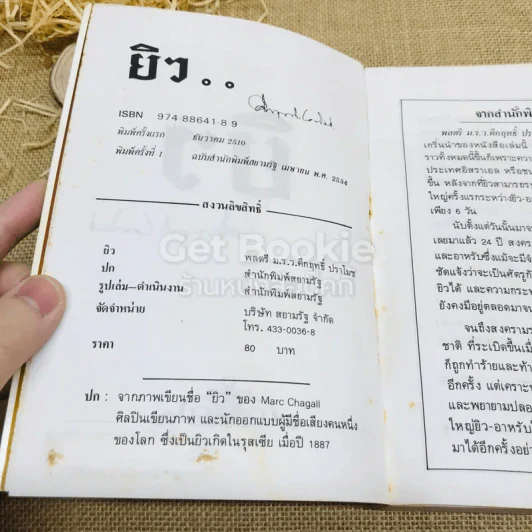 ยิว..
ISBN 974-88641-8-9
พิมพ์ครั้งแรก ธันวาคม 2510
พิมพ์ครั้งที่ 1 ฉบับสำนักพิมพ์สยามรัฐ เมษายน พ.ศ. 2534
สงวนลิขสิทธิ์
ยิว พลตรี ม.ร.ว.คึกฤทธิ์ ปราโมช
ปก สำนักพิมพ์สยามรัฐ
รูปเล่ม-ดำเนินงาน สำนักพิมพ์สยามรัฐ
จัดจำหน่าย บริษัท สยามรัฐ จำกัด
โทร. 433-0036-8
ราคา 80 บาท
ปก : จากภาพเขียนชื่อ "ยิว" ของ Marc Chagall
ศิลปินเขียนภาพ และนักออกแบบผู้มีชื่อเสียงคนหนึ่ง
ของโลก ซึ่งเป็นยิวเกิดในรุสเซีย เมื่อปี 1887
Get Bookie
จากสำนักพิ
พลตรี ม.ร.ว.คึกฤทธิ์ ปรา
เกริ่นนำของหนังสือเล่มนี้
ราวทั้งหมดนี้ขึ้นก็เพราะความ
ประเทศอิสราเอล หรือชน
ขึ้น หลังจากที่ยิวสามารถ
ใหญ่ครั้งแรกระหว่างยิว-อา
เพียง 6 วัน
นับตั้งแต่วันนั้นมาจน
เลยมาแล้ว 24 ปี สงคร
และอาหรับซึ่งแม้จะมีจั
ชัดแจ้งว่าจะเป็นศัตรูกั
ยิวได้ และความกระท
ยังคงมีอยู่ตลอดมาจน
จนถึงสงครามร
ชาติ ที่ระเบิดขึ้นเมื่
ก็ถูกทำร้ายและท้า
อีกครั้ง แต่เคราะห
และพยายามปลอ
ใหญ่ยิว-อาหรับใ
มาได้อีกครั้งอย่า